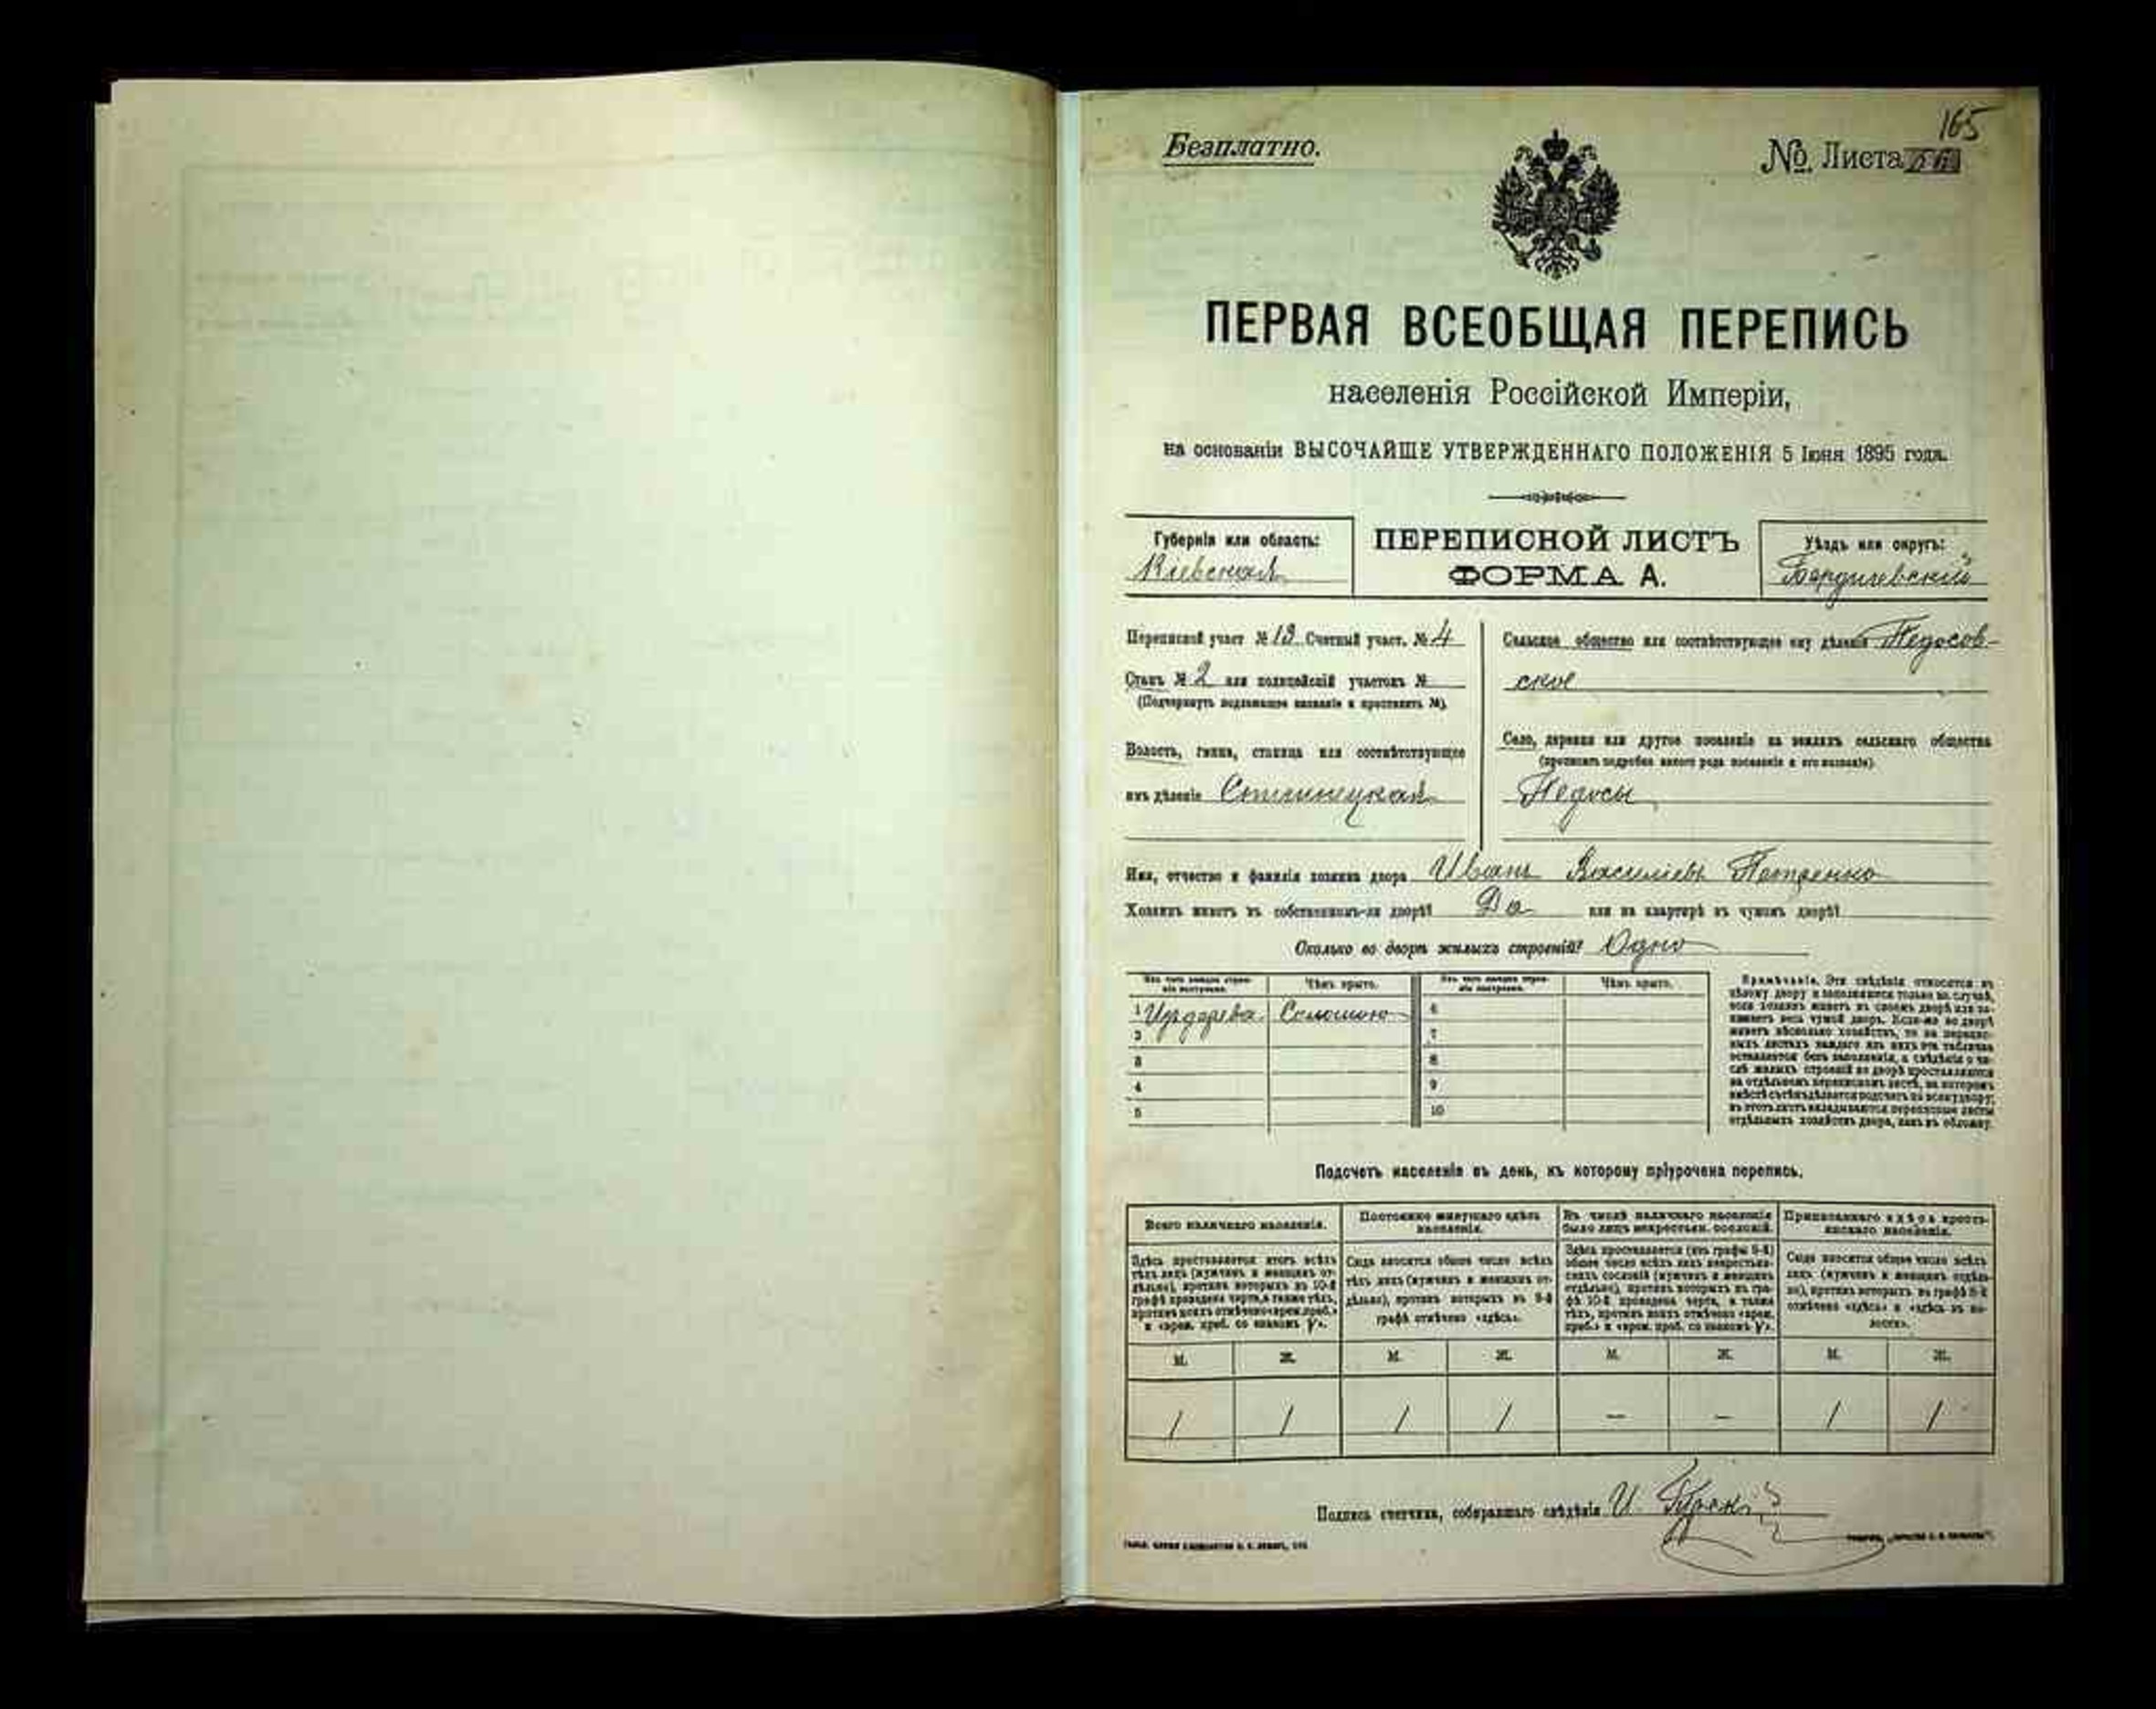 165
Безплатно.
№ Листа
ПЕРВАЯ ВСЕОБЩАЯ ПЕРЕПИСЬ
населенія Россійской Имперіи,
на основаніи ВЫСОЧАЙШЕ УТВЕРЖДЕННАГО ПОЛОЖЕНІЯ 5 Іюня 1895 года.
Губернія или область:
Кіевская
ПЕРЕПИСНОЙ ЛИСТЪ
ФОРМА А.
Уѣздъ или округъ:
Бердичевскій
Переписной участ. № 13 Счетный участ. № 4
Станъ № 2 или полицейскій участокъ №
(Подчеркнуть подлежащее названіе и проставить №).
Волость, гмина, станица или соотвѣтствующее
имъ дѣленіе
Сельское общество или соотвѣтствующее ему дѣленіе Недосов-
ское
Село, деревня или другое поселеніе на земляхъ сельскаго общества
(прописать подробно какого рода поселеніе и его названіе).
Недосы
Имя, отчество и фамилія хозяина двора Иванъ Васильевъ
Хозяинъ живетъ въ собственномъ-ли дворѣ? Да или на квартирѣ въ чужомъ дворѣ?
Сколько во дворѣ жилыхъ строеній? Одно
Изъ чего каждое строе-
ніе построено.
Чѣмъ крыто.
Изъ чего каждое строе-
ніе построено.
Чѣмъ крыто.
1 Изъ дерева Соломою 6
2 7
3 8
4 9
5 10
Примѣчаніе. Эти свѣдѣнія относятся къ
цѣлому двору и заполняются только въ случаѣ,
если хозяинъ живетъ въ своемъ дворѣ или за-
нимаетъ весь чужой дворъ. Если-же во дворѣ
живетъ нѣсколько хозяйствъ, то на перепис-
ныхъ листахъ каждаго изъ нихъ эта табличка
оставляется безъ заполненія, а свѣдѣнія о чи-
слѣ жилыхъ строеній во дворѣ проставляются
на отдѣльномъ переписномъ листѣ, на которомъ
вмѣстѣ съ тѣмъ дѣлается подсчетъ по всему двору;
въ этотъ листъ вкладываются переписные листы
отдѣльныхъ хозяйствъ двора, какъ въ обложку.
Подсчетъ населенія въ день, къ которому пріурочена перепись.
Всего наличнаго населенія.
Постоянно живущаго здѣсь
населенія.
Въ числѣ наличнаго населенія
было лицъ некрестьян. сословій.
Приписаннаго здѣсь кресть-
янскаго населенія.
Здѣсь проставляется итогъ всѣхъ
тѣхъ лицъ (мужчинъ и женщинъ от-
дѣльно), противъ которыхъ въ 10-й
графѣ проведена черта, а также тѣхъ,
противъ коихъ отмѣчено «врем. преб.»
и «врем. преб. со знакомъ V».
Сюда вносится общее число всѣхъ
тѣхъ лицъ (мужчинъ и женщинъ от-
дѣльно), противъ которыхъ въ 9-й
графѣ отмѣчено «здѣсь».
Здѣсь проставляется (изъ графы 9-й)
общее число всѣхъ лицъ некрестьян-
скихъ сословій (мужчинъ и женщинъ
отдѣльно), противъ которыхъ въ гра-
фѣ 10-й проведена черта, а также
тѣхъ, противъ коихъ отмѣчено «врем.
преб.» и «врем. преб. со знакомъ V».
Сюда вносится общее число всѣхъ
лицъ (мужчинъ и женщинъ отдѣль-
но), противъ которыхъ въ графѣ 8-й
отмѣчено «здѣсь» и «здѣсь въ во-
лости».
М. Ж. М. Ж. М. Ж. М. Ж.
1 1 1 1 — — 1 1
Подпись счетчика, собиравшаго свѣдѣнія И.